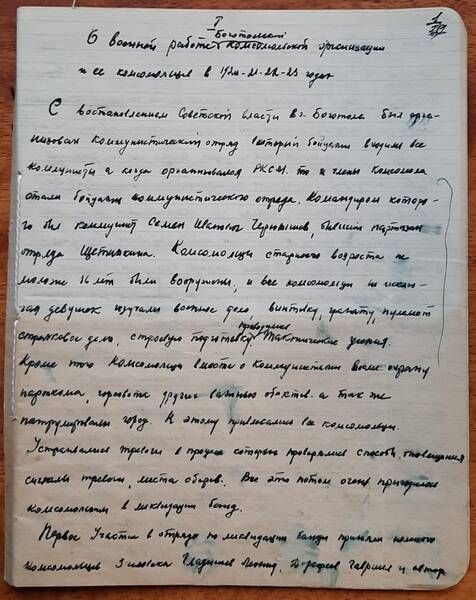 I
1
О военной работе Боготольской комсомольской организации
и ее комсомольцев в 1920-21-22-23 годах
С востановлением Советской власти в г. Боготола был орга-
низован Коммунистический отряд в который бойцами входили все
коммунисты а когда организовался РКСМ. то и члены Комсомола
стали бойцами коммунистического отряда. Командиром которо-
го был коммунист Семен Иванович Чернышев, бывший партизан
отряда Щетинкина. Комсомольцы старшего возраста не
моложе 16 лет были вооружены, и все комсомольцы не исклю-
чая девушек изучали военное дело, винтовку, гранату, пулемет
стрелковое дело, строевую подготовку проводились Тактические учения.
Кроме того Комсомольцы вместе с коммунистами несли охрану
парткома, горсовета других важных обектов. а так же
патрулировали город. К этому привлекались все комсомольцы.
Устраивались тревоги в процессе которых проверялись способы, оповещения
сигналы тревоги, места сборов. Все это потом очень пригодилось
комсомольцам в ликвидации банд.
Первое Участие в отряде по ликвидации банды приняли немного
комсомольцев 3 человека Гладышев Леонид, Дорофеев Гавриил и автор